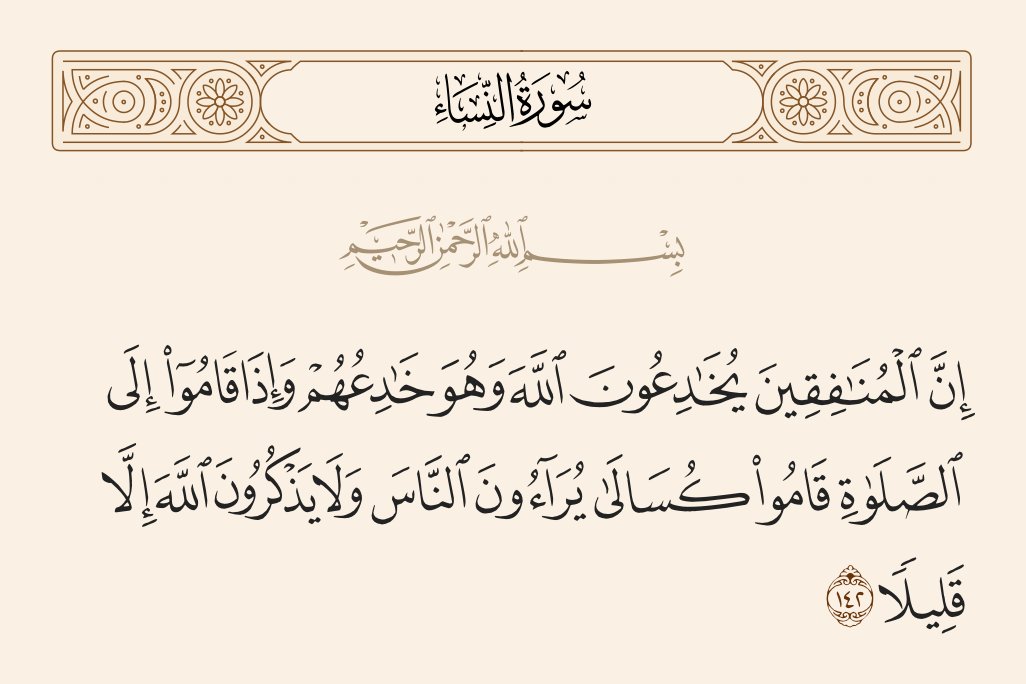 سُورَةُ النِّسَاءِ
بِسْمِ ٱللَّهِ ٱلرَّحْمَٰنِ ٱلرَّحِيمِ
إِنَّ ٱلْمُنَـٰفِقِينَ يُخَـٰدِعُونَ ٱللَّهَ وَهُوَ خَـٰدِعُهُمْ وَإِذَا قَامُوٓا۟ إِلَى
ٱلصَّلَوٰةِ قَامُوا۟ كُسَالَىٰ يُرَآءُونَ ٱلنَّاسَ وَلَا يَذْكُرُونَ ٱللَّهَ إِلَّا
قَلِيلًا ١٤٢